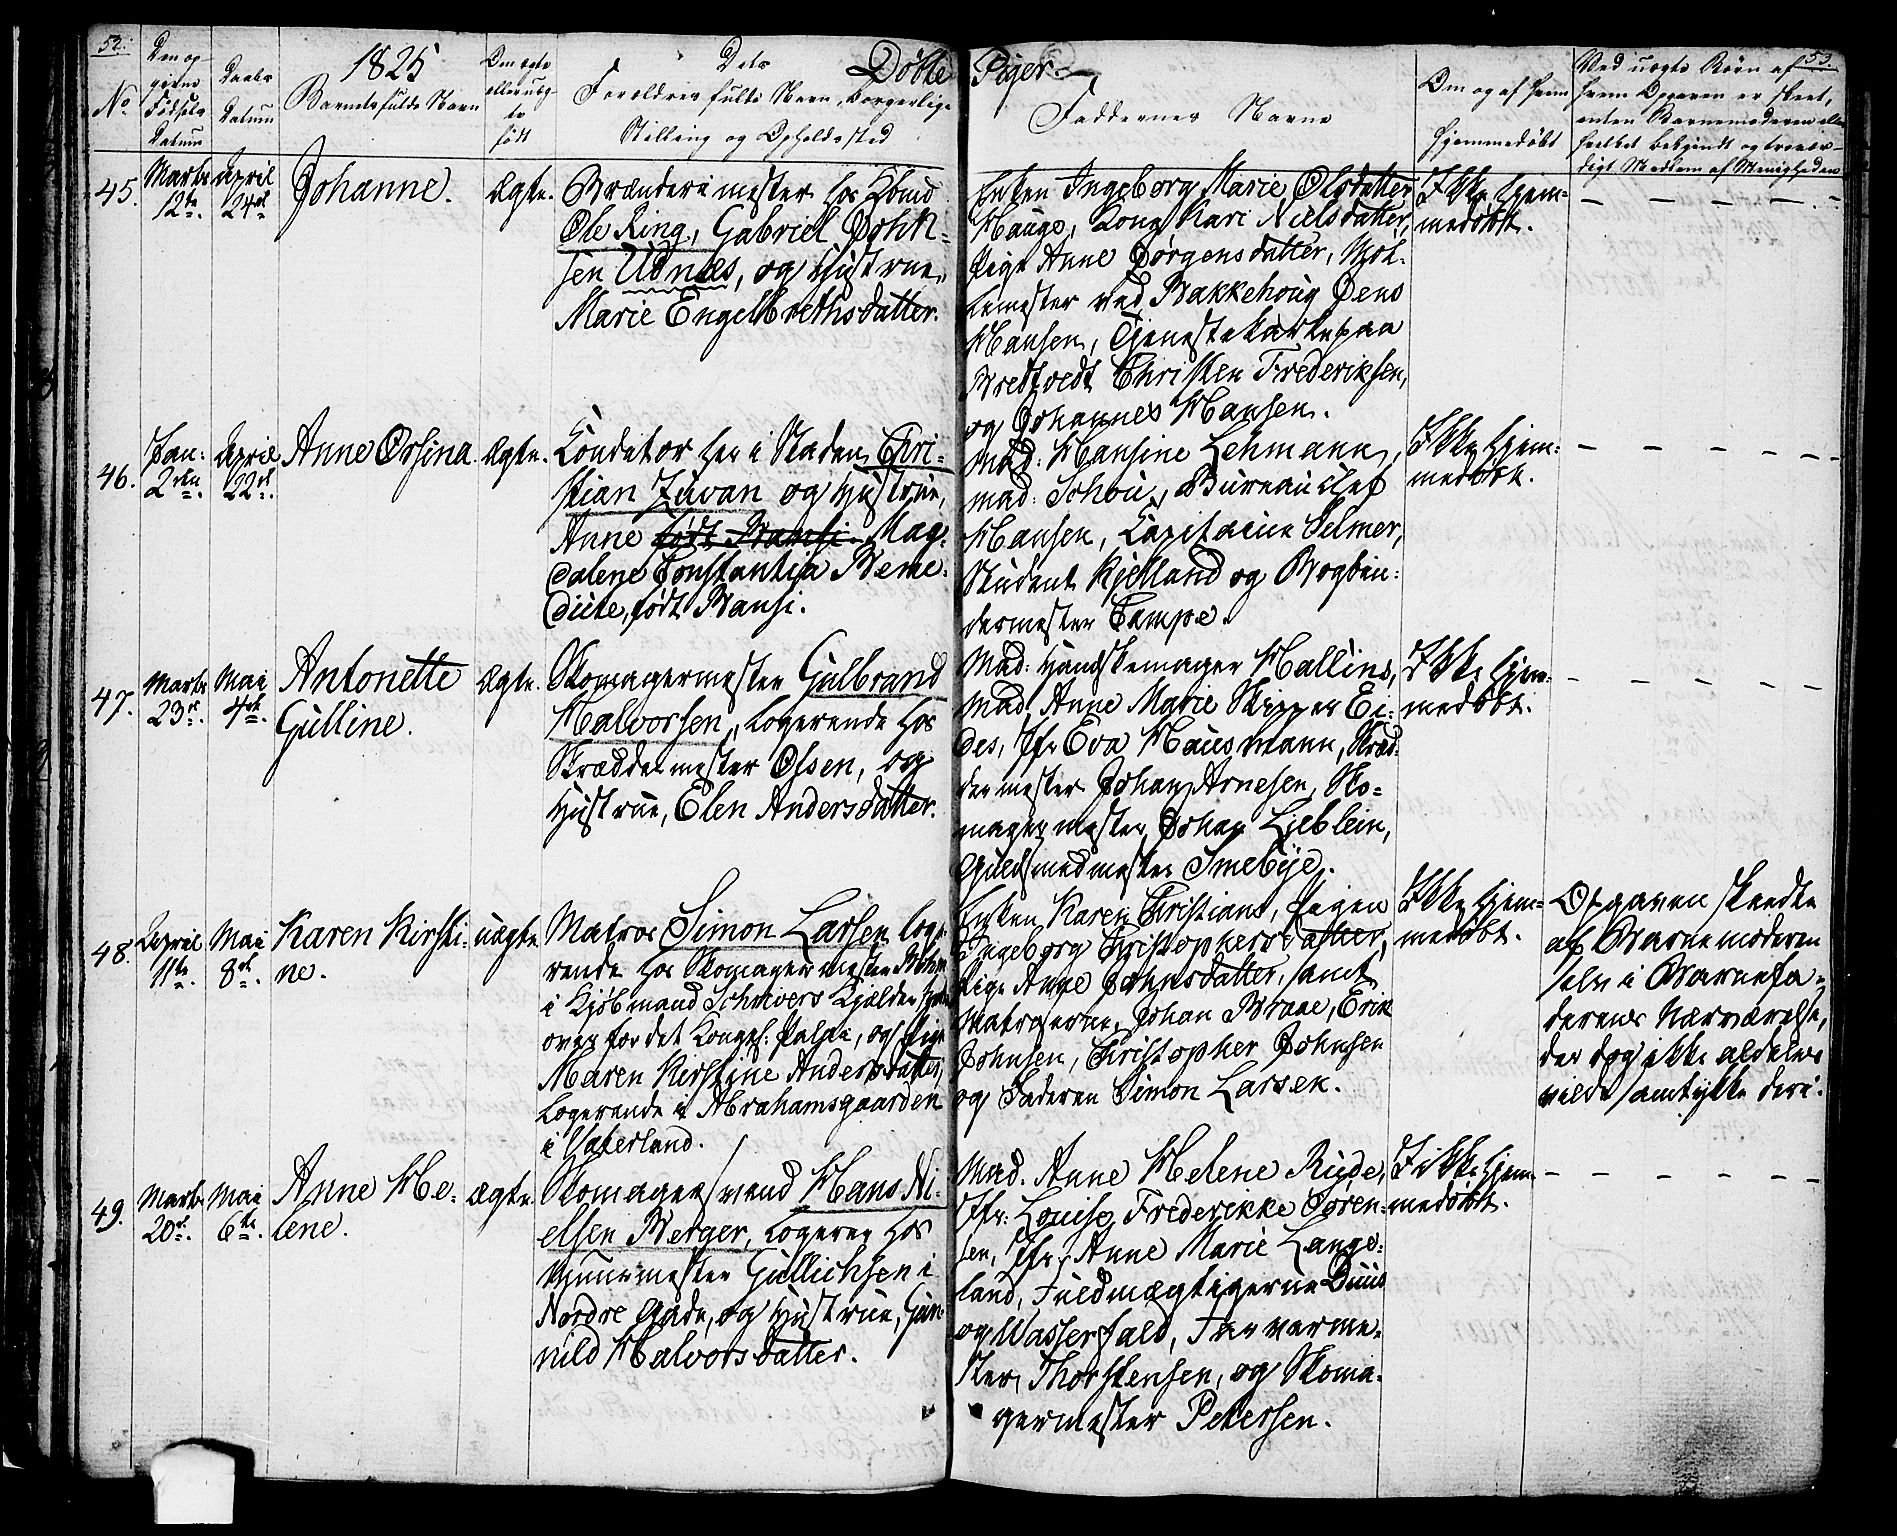 52.
No
Den op-
givne
Fødsels
Datum
Daabs
Datum
1825
Barnets fulde Navn
Om ægte
eller uæg-
te
født
Dets
Forældres fulde Navn, borgerlige
Stilling og Opholdssted
Døbte
Piger
Faddernes Navne
Om og af hvem
hjemmedøbt
53.
Ved uægte Børn af
hvem Opgaven er skeet,
enten Barnemoderen eller
hvilket bekjendt og troevær-
digt Medlem af Menigheden
45.
Marts
12te
April
24de
Johanne.
Ægte.
Brænderimester hos Kbmd
Ole Ring, Gabriel John-
sen Udnæs, og Hustrue,
Marie Engelbrethsdatter.
Enken Ingeborg Marie Olsdatter
Hauge, Kone Kari Nielsdatter,
Pige Anne Jørgensdatter, Møl-
lemester ved Bakkehoug Jens
Hansen, Tjenestekarle paa
Bredtvedt Christen Frederiksen,
og Johannes Hansen.
Ikke hjem-
medøbt.
46.
Jan:
2den
April
22de
Anne Orsina
Ægte.
Conditor her i Staden Chri-
stian Zuvan og Hustrue,
Anne født Bansi Mag-
dalene Constantia Bene-
dicte, født Bansi.
Mad: Hansine Lehmann,
mad: Schou, Bureauchef
Hansen, Capitaine Selmer,
Student Kjelland og Bogbin-
dermester Campe.
Ikke hjem-
medøbt.
47.
Marts
23de
Mai
4de
Antonette
Gulline.
Ægte.
Skomagermester Gulbrand
Halvorsen, logerende hos
Skræddermester Olsen, og
Hustrue, Elen Andersdatter.
Mad: Handskemager Hallins,
Mad Anne Marie Skipper Ei-
des, Jfr Eva Hausmann, Skræd-
dermester Johan Arnesen, Sko-
magermester Johan Lieblein,
Guldsmedmester Smebye.
Ikke hjem-
medøbt.
48.
April
11te
Mai
8de
Karen Kirsti-
ne.
uægte
Matros Simon Larsen loge-
rende hos Skomagermester
i Kjøbmand Schrivers Kjælder
over for det Kongel: Palæe, og Pige
Maren Kirstine Andersdatter,
logerende i Abrahamsgaarden
i Vaterland.
Enken Karen Christians, Pigen
Ingeborg Christophersdatter,
Pige Anne Johnsdatter, samt
Matroserne, Johan Braae, Erik
Johnsen, Christopher Johnsen
og Faderen Simon Larsen.
Ikke hjem-
medøbt.
Opgaven skeedte
af Barnemoderen
selv i Barnefa-
derens Nærværelse,
der dog ikke aldeles
vilde samtykke deri.
49.
Marts
20de
Mai
6te
Anne He-
lene.
ægte
Skomagersvend Hans Ni-
elsen Berger, logerer hos
Gullichsen i
Nordre Gade, og Hustrue, Gun-
nild Halvorsdatter.
Mad. Anne Helene Rude,
Jfr: Louise Frederikke Søren-
sen, Jfr: Anne Marie Lange-
land, Fuldmægtigerne Buus
og Wasserfald, Farverme-
ster Thorstensen, og Skoma-
germester Petersen.
Ikke hjem-
medøbt.